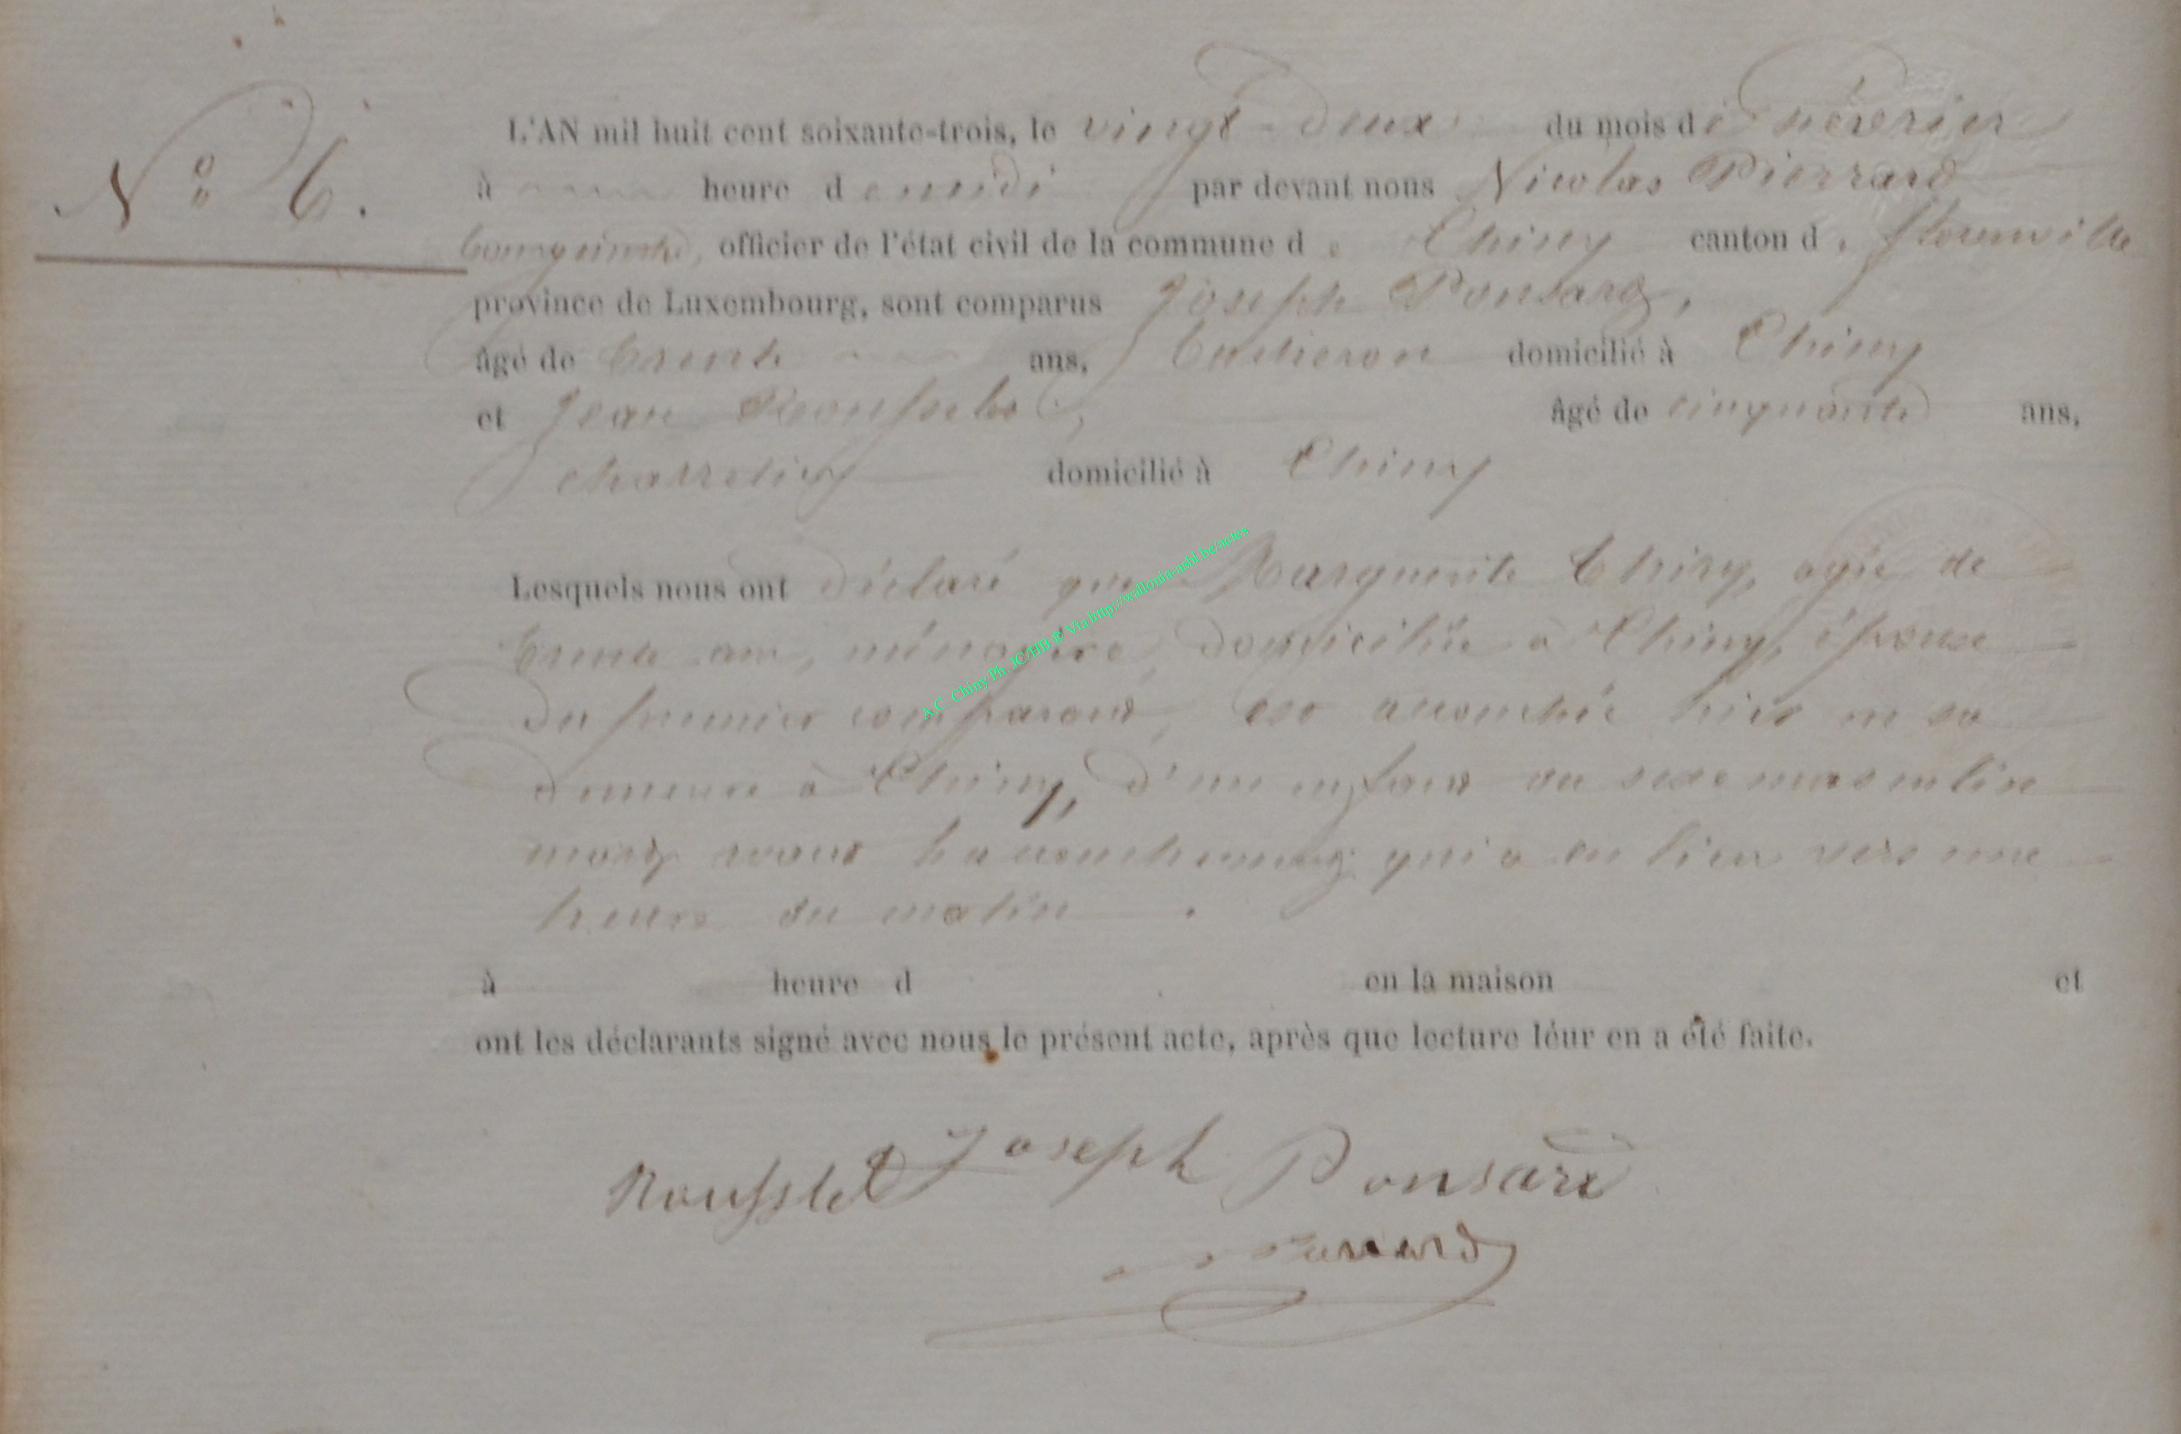 N° 6.
L'AN mil huit cent soixante-trois, le vingt-deux du mois de février
à heure de midi par devant nous Nicolas Pierrard
bourgmestre, officier de l'état civil de la commune de Chiny canton de florenville
province de Luxembourg, sont comparus Joseph Ponsard,
âgé de trente ans, bucheron domicilié à Chiny
et Jean Rousselet, âgé de cinquante ans,
charretier domicilié à Chiny
Lesquels nous ont déclaré que Marguerite Thiry, agée de
trente ans, ménagère, domiciliée à Chiny, épouse
du premier comparant, est accouchée hier en sa
demeure à Chiny, d'un enfant du sexe masculin
mort avant l'accouchement qui a eu lieu vers une
heure du matin.
à heure d en la maison et
ont les déclarants signé avec nous le présent acte, après que lecture léur en a été faite.
Rousslet Joseph Ponsard
A.C. Chiny Ph. JC/HD © Via http://wallonia-asbl.be/actes